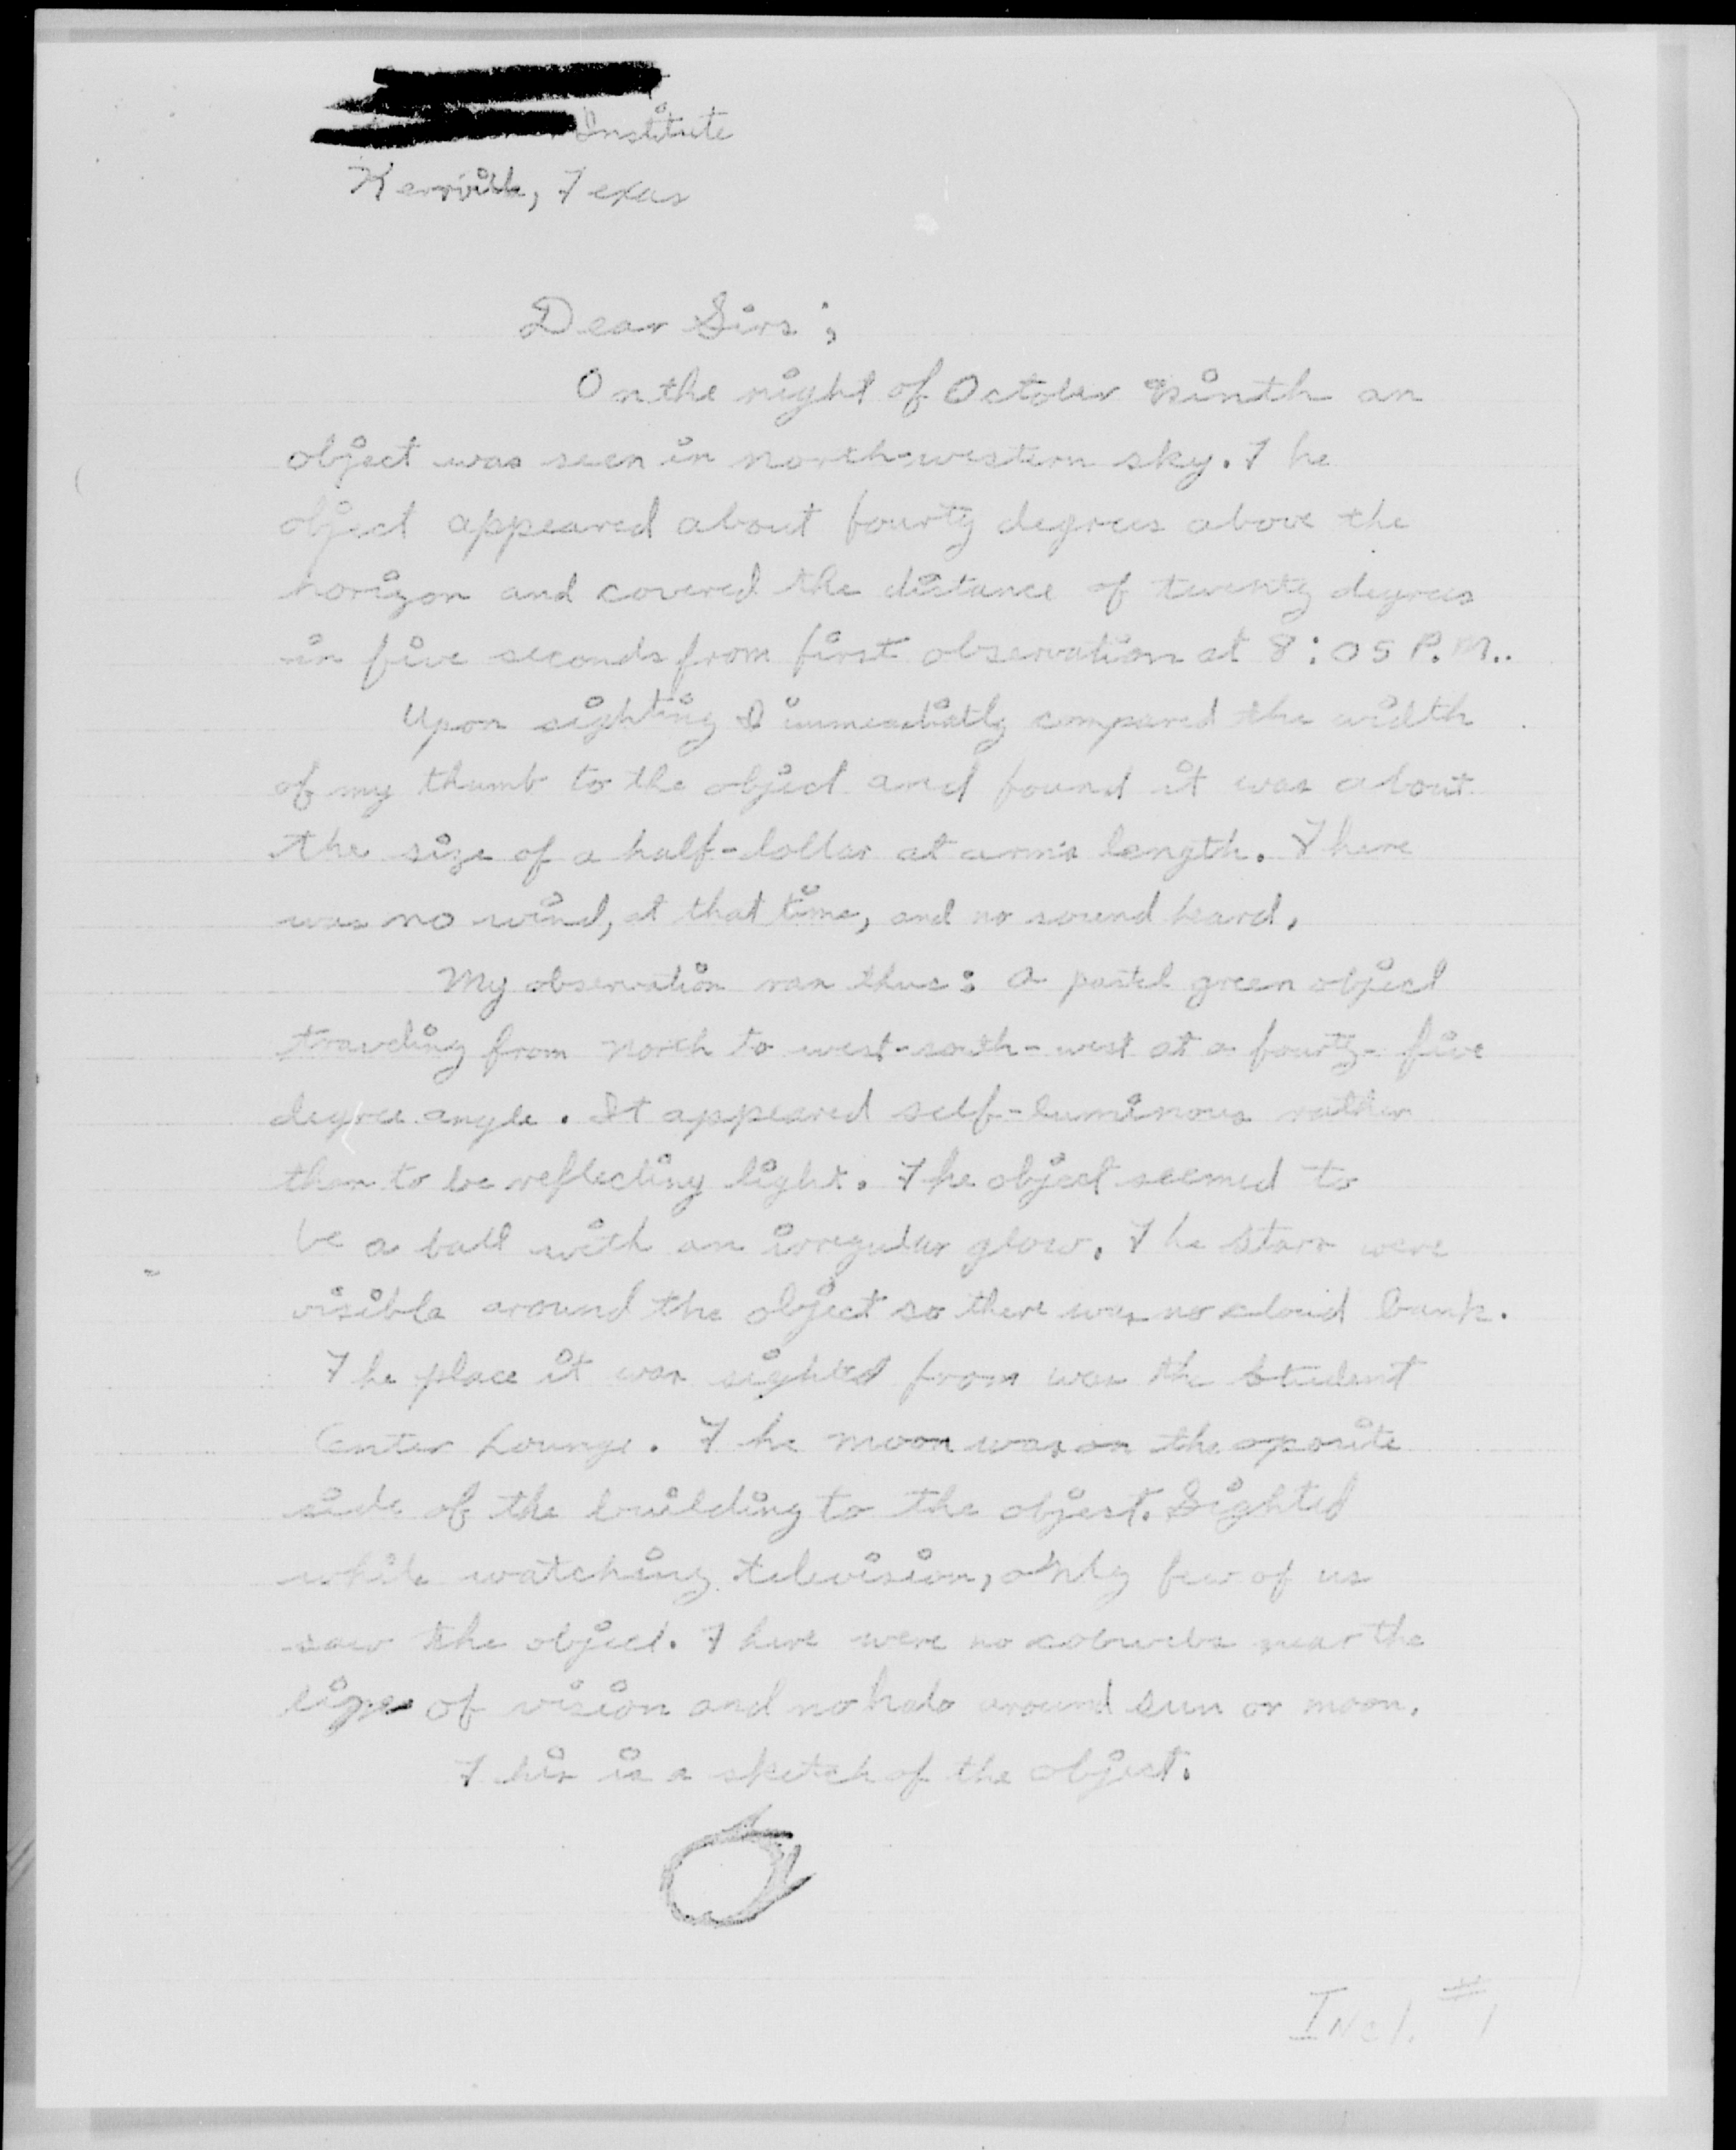 Institute
Kerrville, Texas
Dear Sirs;
On the night of October ninth an
object was seen in north-western sky. The
object appeared about fourty degrees above the
horizon and covered the distance of twenty degrees
in five seconds from first observation at 8:05 P.M..
Upon sighting I immediatly compared the width
of my thumb to the object and found it was about
the size of a half-dollar at arm's length. There
was no wind, at that time, and no sound heard.
My observation ran thus: a pastel green object
traveling from north to west-south-west at a fourty-five
degree angle. It appeared self-luminous rather
than to be reflecting light. The object seemed to
be a ball with an irregular glow. The stars were
visible around the object so there was no cloud bank.
The place it was sighted from was the Student
Center Lounge. The moon was on the oposite
side of the building to the object. Sighted
while watching television, only few of us
saw the object. There were no cobwebs near the
of vision and no halo around sun or moon.
This is a sketch of the object.
Incl. #1